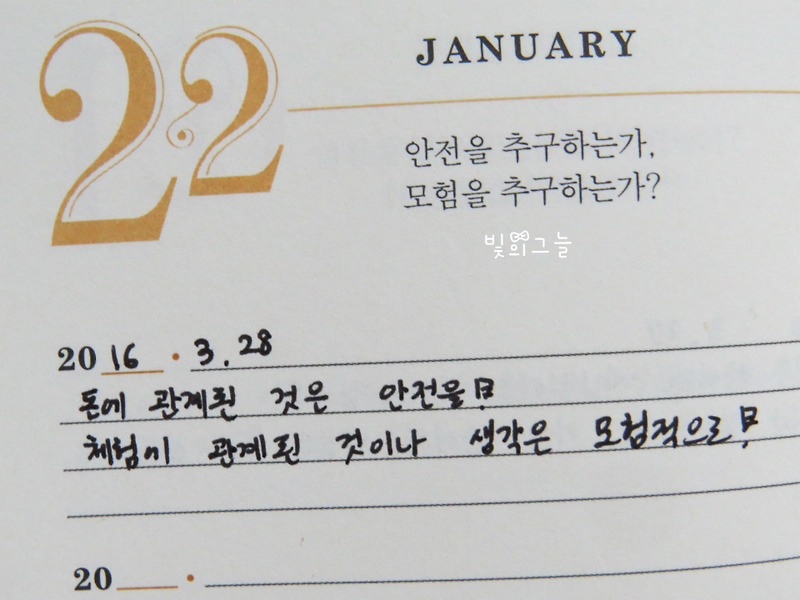 22
JANUARY
안전을 추구하는가,
모험을 추구하는가?
빛의그늘
2016 · 3.28
돈에 관계된 것은 안전을!
체험에 관계된 것이나 생각은 모험적으로!
20 ·